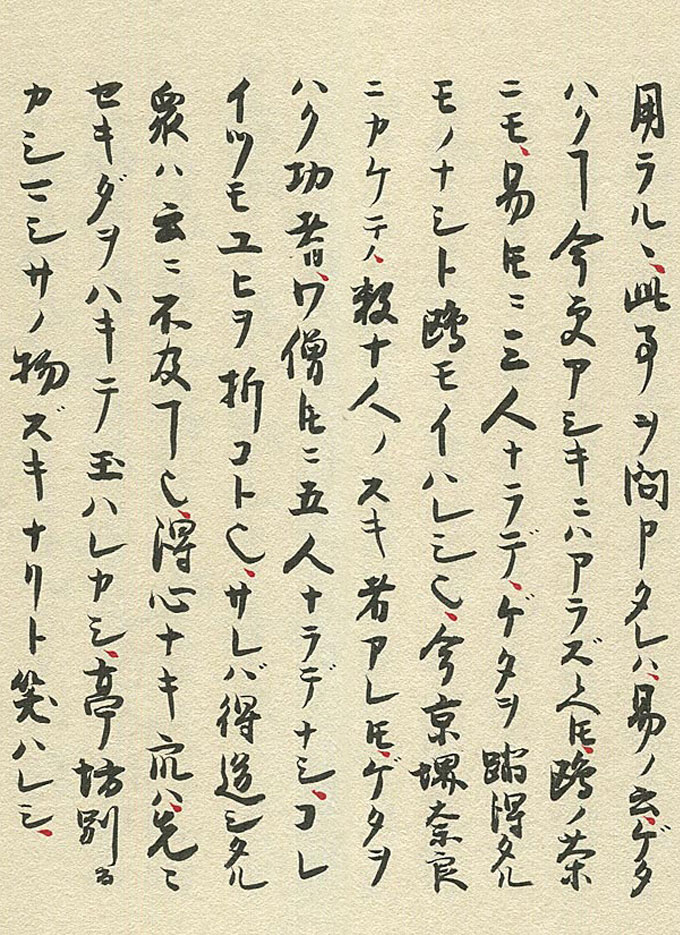 用ラルヽ、此事ヲ問申タレハ、易ノ云、ゲタ
ハクヿ今更アシキニハアラズ候ヘ𪜈、鴎ノ茶
ニモ、易𪜈ニ三人ナラデ、ゲタヲ踏得タル
モノナシト鴎モイハレシ也、今京堺奈良
ニカケテ、数十人ノスキ者アレ𪜈、ゲタヲ
ハク功者、ワ僧𪜈ニ五人ナラデナシ、コレ
イツモユヒヲ折コト也、サレバ得道シタル
衆ハ云ニ不及ヿ也、得心ナキ衆ハ、先々
セキダヲハキテ玉ハレカシ、亭坊別而
カシマシサノ物ズキナリト笑ハレシ、